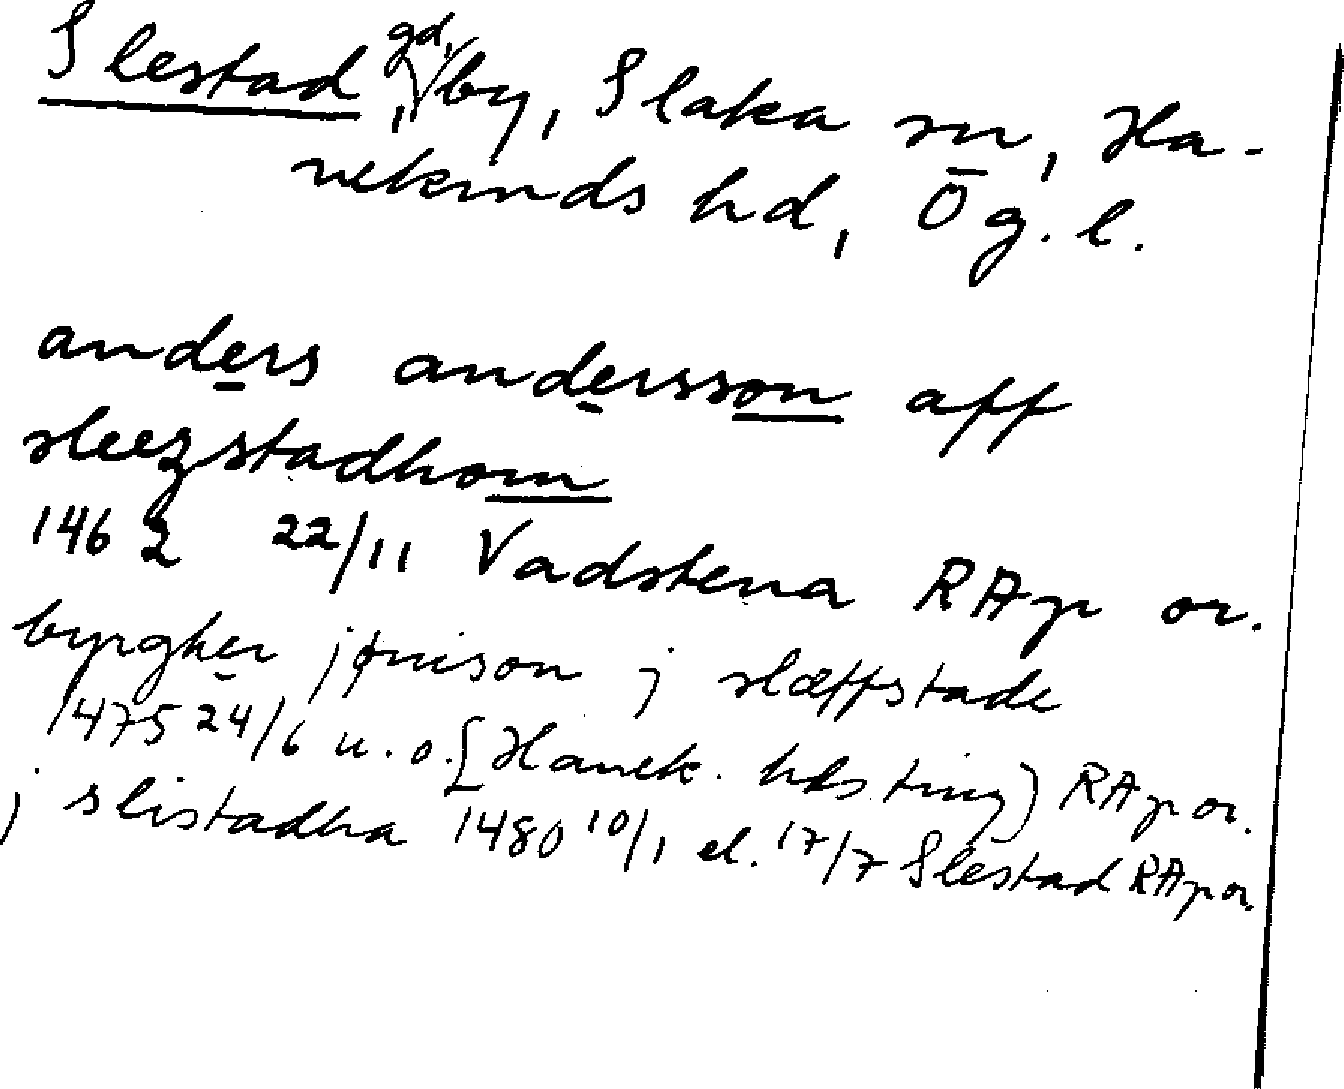 Slestad, gd, by, Slaka sn, Ha-
nekinds hd, Ög. l.
anders andersson aff
sleezstadhom
1462 22/11 Vadstena RAp or.
byrgher jønison j slæffstade
1475 24/6 u. o. [Hanek. hds ting) RAp or.
j slistadha 1480 10/1 el. 17/7 Slestad RAp or.